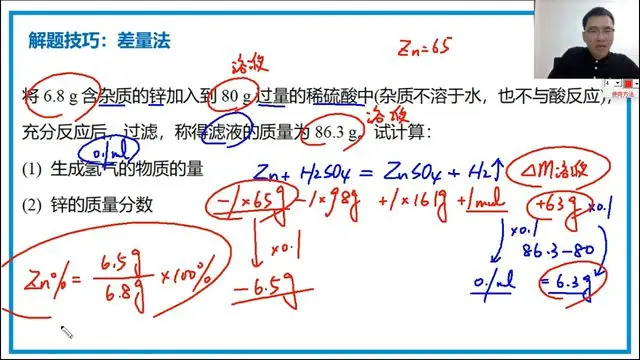 解题技巧：差量法
Zn=65
溶液
将 6.8 g 含杂质的锌加入到 80 g 过量的稀硫酸中(杂质不溶于水，也不与酸反应)，
溶液
充分反应后，过滤，称得滤液的质量为 86.3 g。试计算：
0.1mol
(1) 生成氢气的物质的量
Zn + H2SO4 = ZnSO4 + H2↑ △m溶液
(2) 锌的质量分数
-1×65g -1×98g +1×161g +1mol +63g ×0.1
×0.1 ×0.1 86.3-80
Zn% = 6.5g / 6.8g ×100%
-6.5g 0.1mol = 6.3g